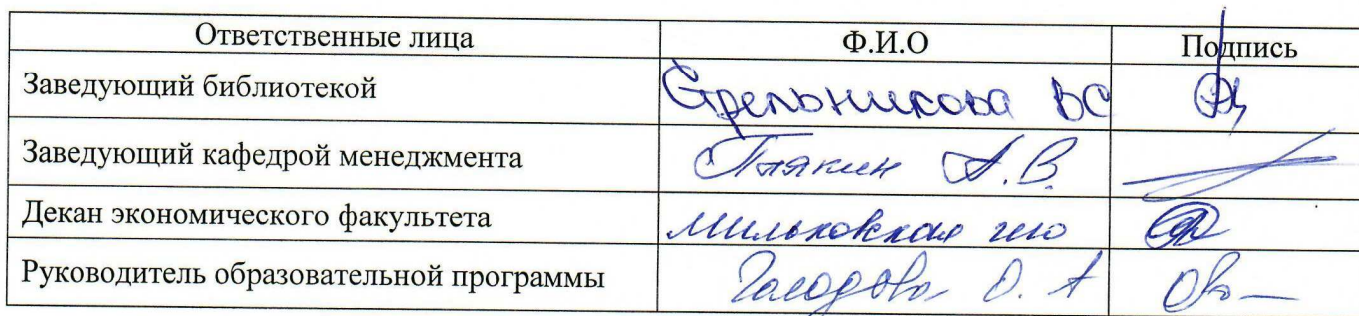 Ответственные лица Ф.И.О Подпись
Заведующий библиотекой Стрельникова ВС
Заведующий кафедрой менеджмента А.В.
Декан экономического факультета Мильковская
Руководитель образовательной программы О. А